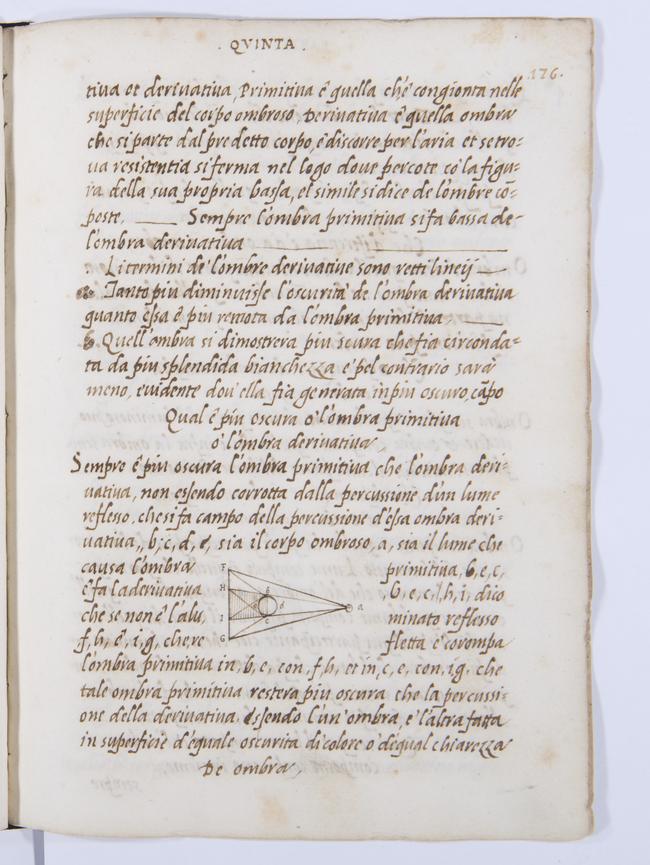 . QVINTA .
176.
tiua et deriuatiua, Primitiua è quella ché congionta nelle
superficie del corpo ombroso, Deriuatiua è quella ombra
che si parte dal predetto corpo, e discorre per l'aria et se tro=
ua resistentia si ferma nel logo doue percote cò la figu=
ra della sua propria bassa, et simile si dice de l'ombre co=
poste, Sempre l'ombra primitiua si fa bassa de=
l'ombra deriuatiua
Li termini de l'ombre deriuatiue sono retti lineij
Tanto piu diminuisse l'oscurità de l'ombra deriuatiua
quanto essa è piu remota da l'ombra primitiua
Quell'ombra si dimostrerà piu scura che fia circonda=
ta da piu splendida bianchezza e pel contrario sarà
meno, euidente dou'ella fia generata in piu oscuro, cãpo
Qual è piu oscura o l'ombra primitiua
o l'ombra deriuatiua,
Sempre è piu oscura l'ombra primitiua che l'ombra deri=
uatiua, non essendo corrotta dalla percussione d'un lume
reflesso, che si fa campo della percussione d'essa ombra deri=
uatiua,, b, c, d, e, sia il corpo ombroso, a, sia il lume che
causa l'ombra primitiua, b, e, c,
e fa la deriuatiua b, e, c, h, i, dico
che se non è l'alu, minato reflesso
f, h, è, i, g, che re fletta e corompa
F
H
I
G
b
e
d
c
a
l'ombra primitiua in, b, e, con, f, h, et in, c, e, con, i, g, che
tale ombra primitiua resterà piu oscura che la percussi=
one della deriuatiua, essendo l'un'ombra, e l'altra fatta
in superficiè d'equale oscurità di colore o d'equal chiarezza
De ombra,